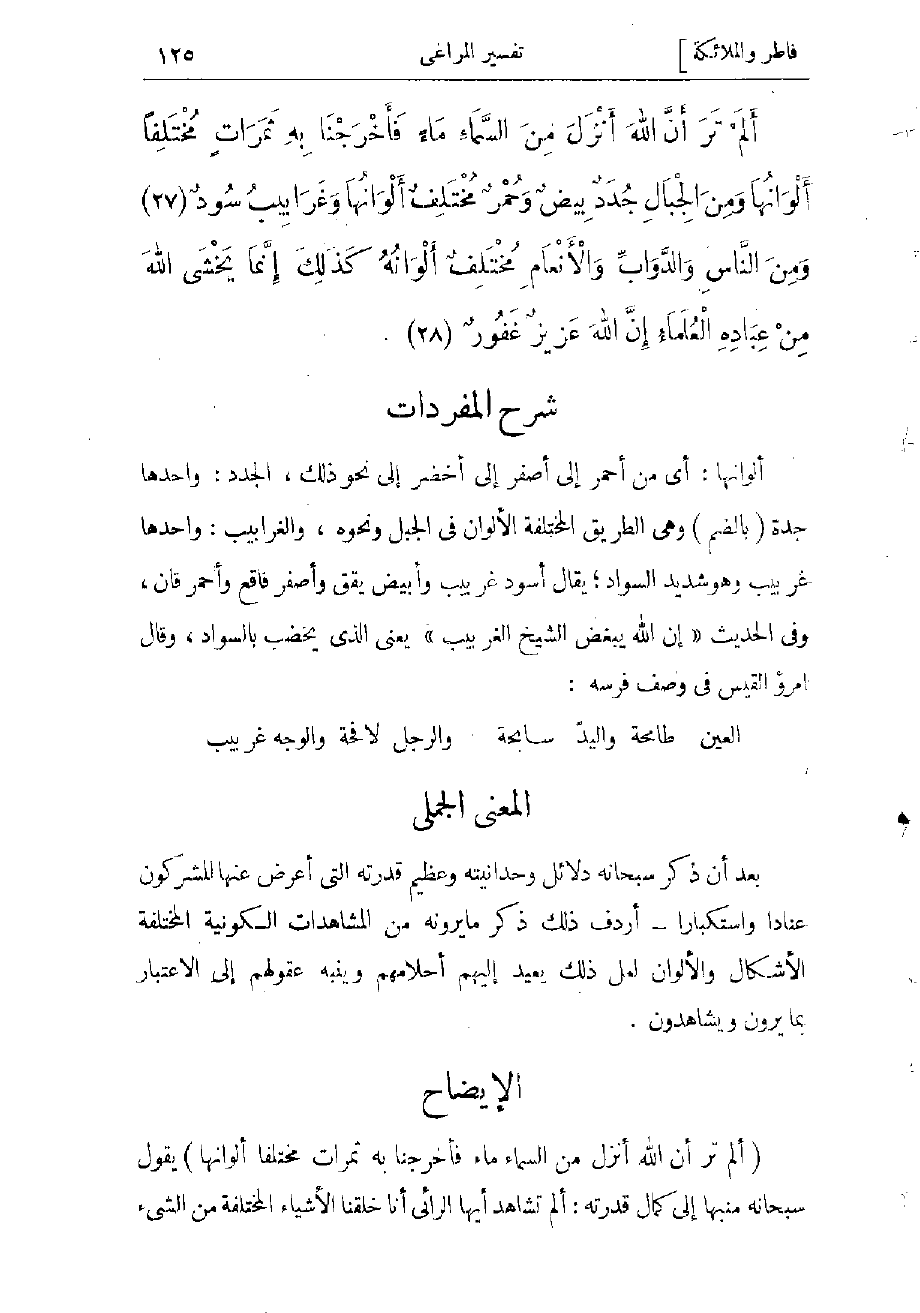 فاطر والملائكة ]
تفسير المراغى
١٢٥
أَلَمْ تَرَ أَنَّ اللهَ أَنْزَلَ مِنَ السَّمَاءِ مَاءً فَأَخْرَجْنَا بِهِ ثَمَرَاتٍ مُخْتَلِفًا
أَلْوَانُهَا وَمِنَ الْجِبَالِ جُدَدٌ بِيضٌ وَحُمْرٌ مُخْتَلِفٌ أَلْوَانُهَا وَغَرَابِيبُ سُودٌ (٢٧)
وَمِنَ النَّاسِ وَالدَّوَابِّ وَالْأَنْعَامِ مُخْتَلِفٌ أَلْوَانُهُ كَذَلِكَ إِنَّمَا يَخْشَى اللهَ
مِنْ عِبَادِهِ الْعُلَمَاءُ إِنَّ اللهَ عَزِيزٌ غَفُورٌ (٢٨) .
شرح المفردات
ألوانها : أى من أحمر إلى أصفر إلى أخضر إلى نحو ذلك ، الجدد : واحدها
جدة ( بالضم ) وهى الطريق المختلفة الألوان فى الجبل ونحوه ، والغرابيب : واحدها
غربيب وهو شديد السواد ؛ يقال أسود غربيب وأبيض يقق وأصفر فاقع وأحمر قان ،
وفى الحديث « إن الله يبغض الشيخ الغربيب » يعنى الذى يخضب بالسواد ، وقال
امرؤ القيس فى وصف فرسه :
العين طامحة واليدّ سابحة والرجل لافحة والوجه غربيب
المعنى الجملى
بعد أن ذكر سبحانه دلائل وحدانيته وعظيم قدرته التى أعرض عنها المشركون
عنادا واستكبارا – أردف ذلك ذكر ما يرونه من المشاهدات الكونية المختلفة
الأشكال والألوان لعل ذلك يعيد إليهم أحلامهم وينبه عقولهم إلى الاعتبار
بما يرون ويشاهدون .
الإيضاح
( ألم تر أن الله أنزل من السماء ماء فأخرجنا به ثمرات مختلفا ألوانها ) يقول
سبحانه منبها إلى كمال قدرته : ألم تشاهد أيها الرأئى أنا خلقنا الأشياء المختلفة من الشىء